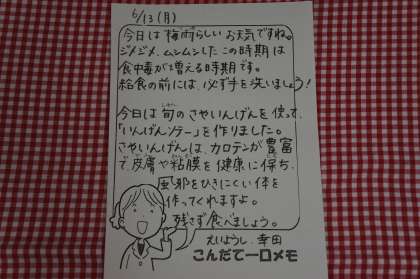 6/13(月)
今日は梅雨らしいお天気ですね。
ジメジメ、ムンムンしたこの時期は
食中毒が増える時期です。
給食の前には、必ず手を洗いましょう!
今日は旬のさやいんげんを使って、
「いんげんソテー」を作りました。
さやいんげんは、カロテンが豊富
で、皮膚や粘膜を健康に保ち、
風邪をひきにくい体を
作ってくれますよ。
残さず食べましょう。
えいようし 幸田
こんだて一口メモ